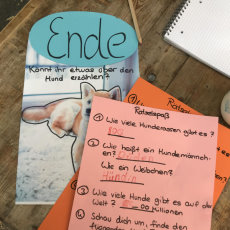 Ende
Könnt ihr etwas über den
Hund erzählen?
Ratselspaß
① Wie viele Hunderassen gibt es?
② Wie heißt ein Hundemännch-
en?
Wie ein Weibchen?
Hündin
③ Wie viele Hunde gibt es auf der
Welt? Millionen
④ Schau dich um, finde den